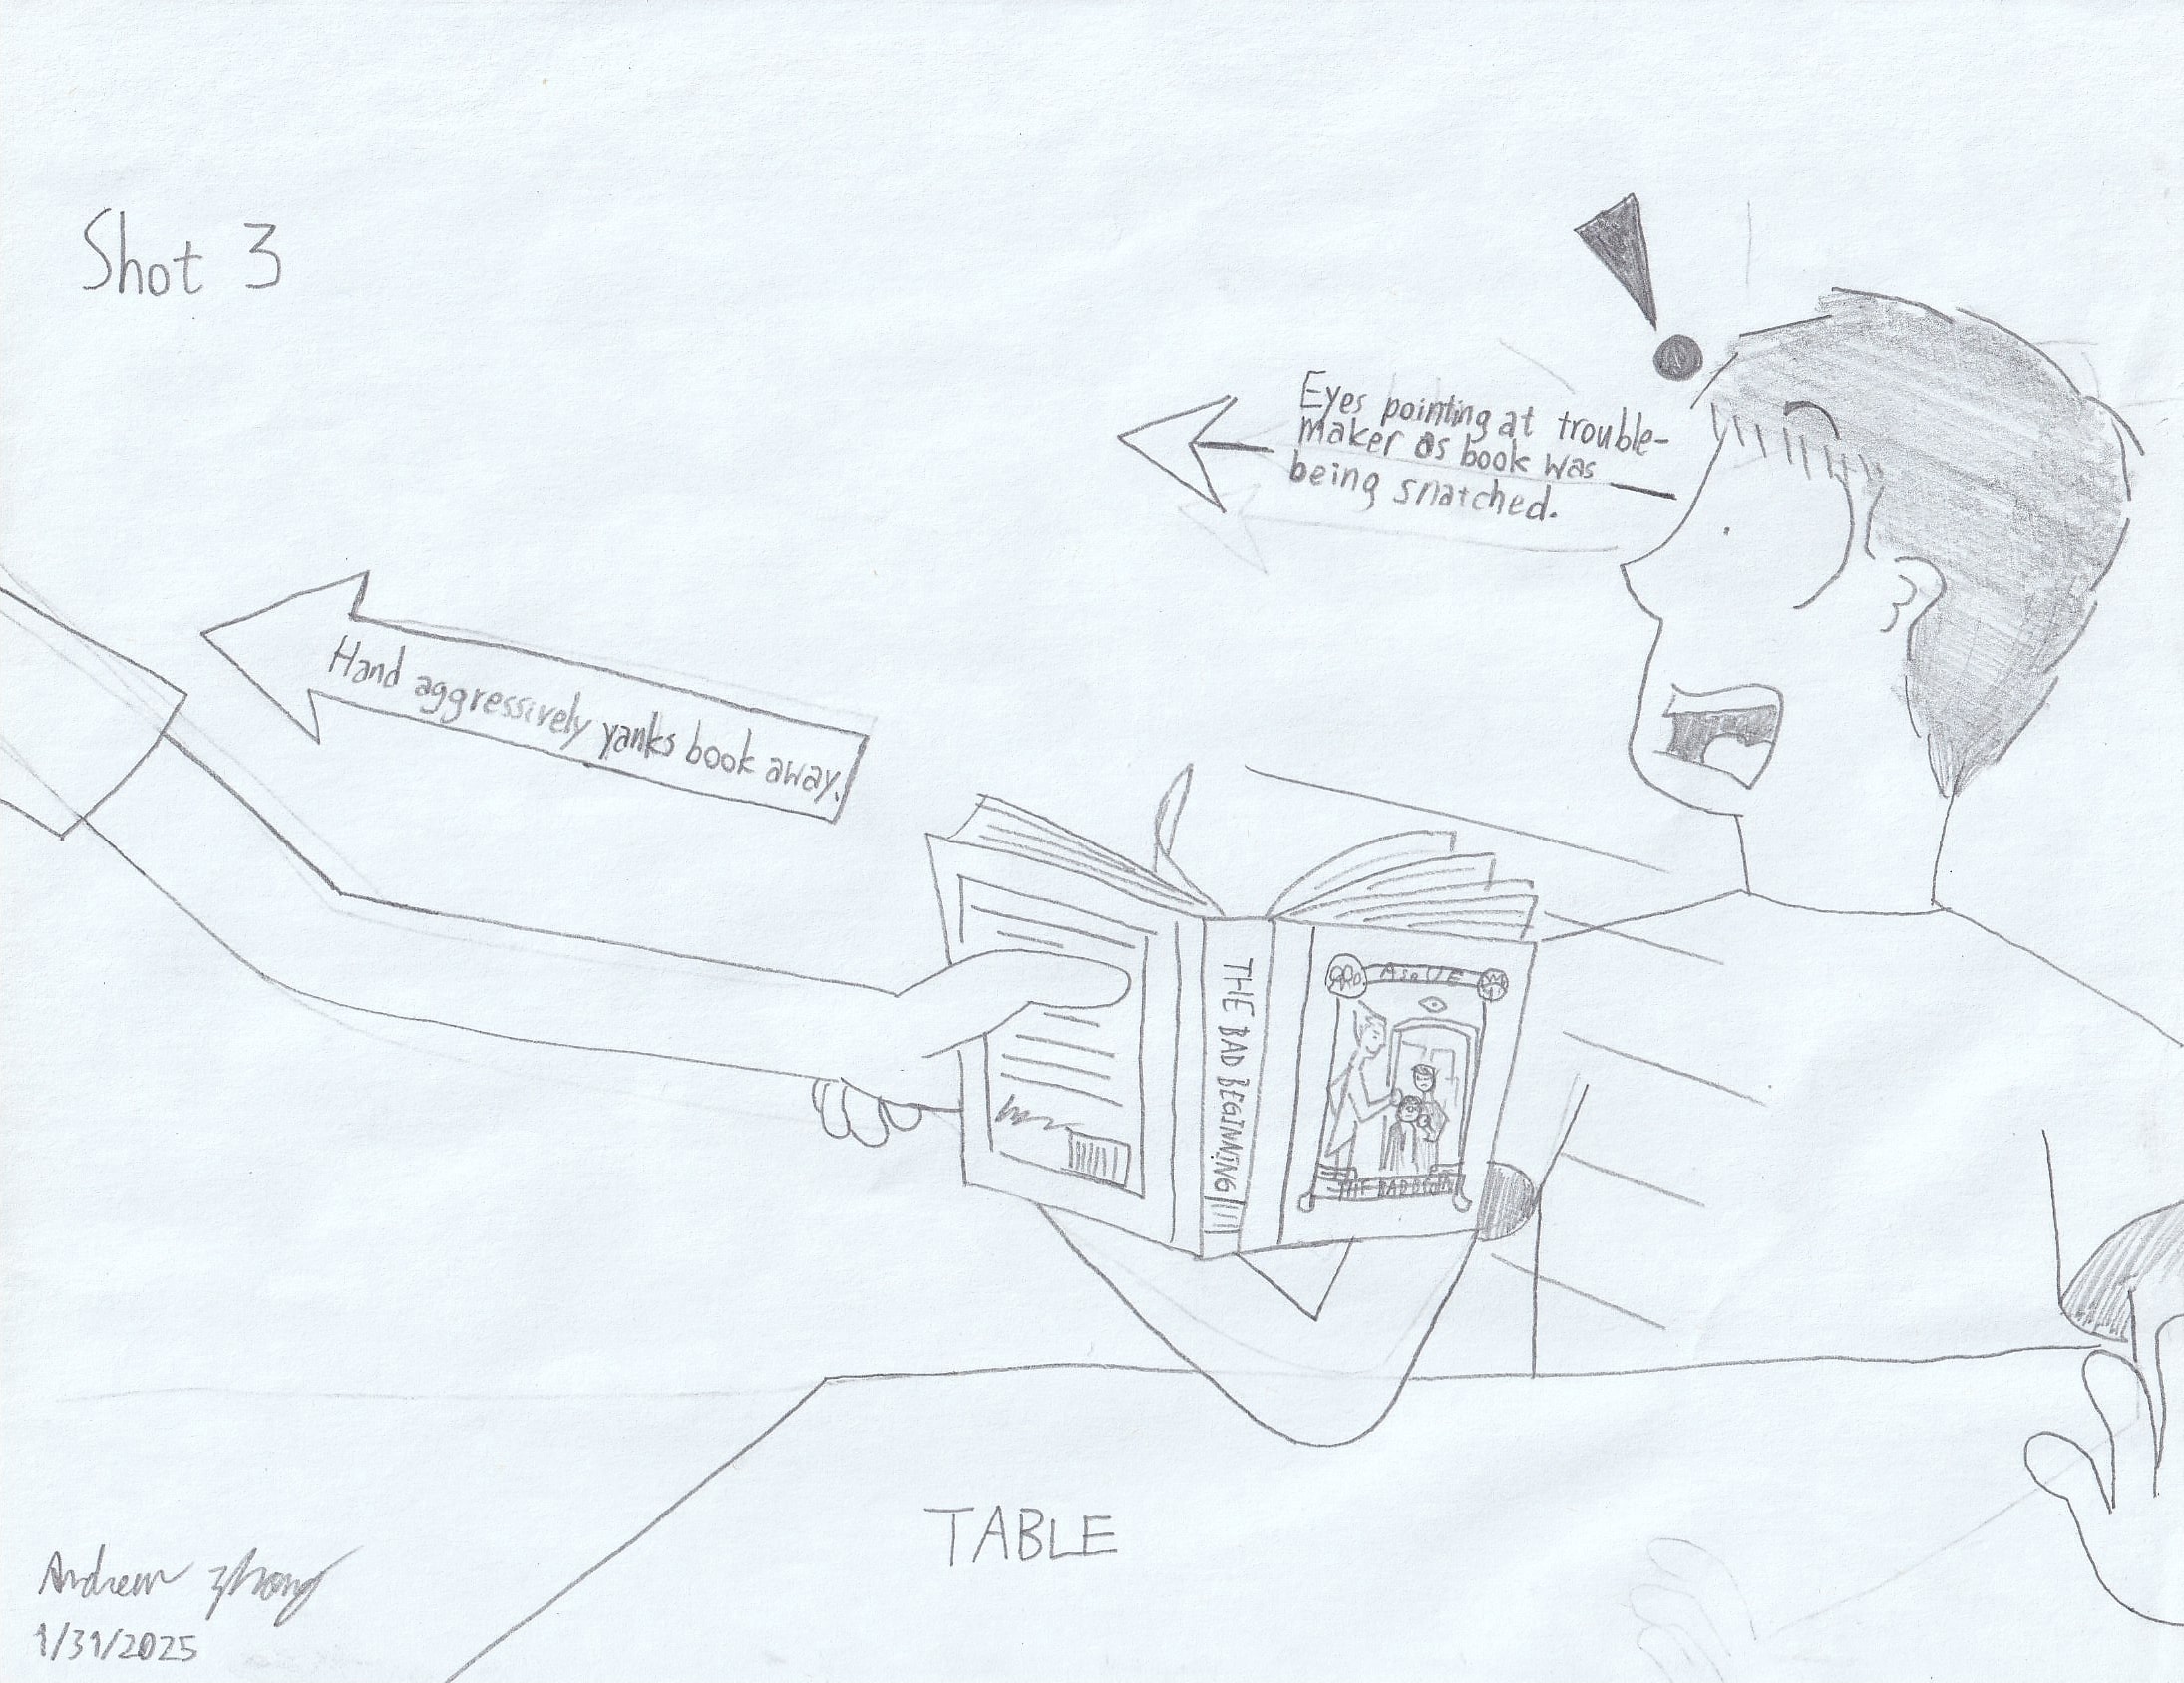 Shot 3
Eyes pointing at trouble-
maker as book was
being snatched.
Hand aggressively yanks book away.
THE BAD BEGINNING
ASOUE
THE BAD
TABLE
Andrew Zhang
1/31/2025